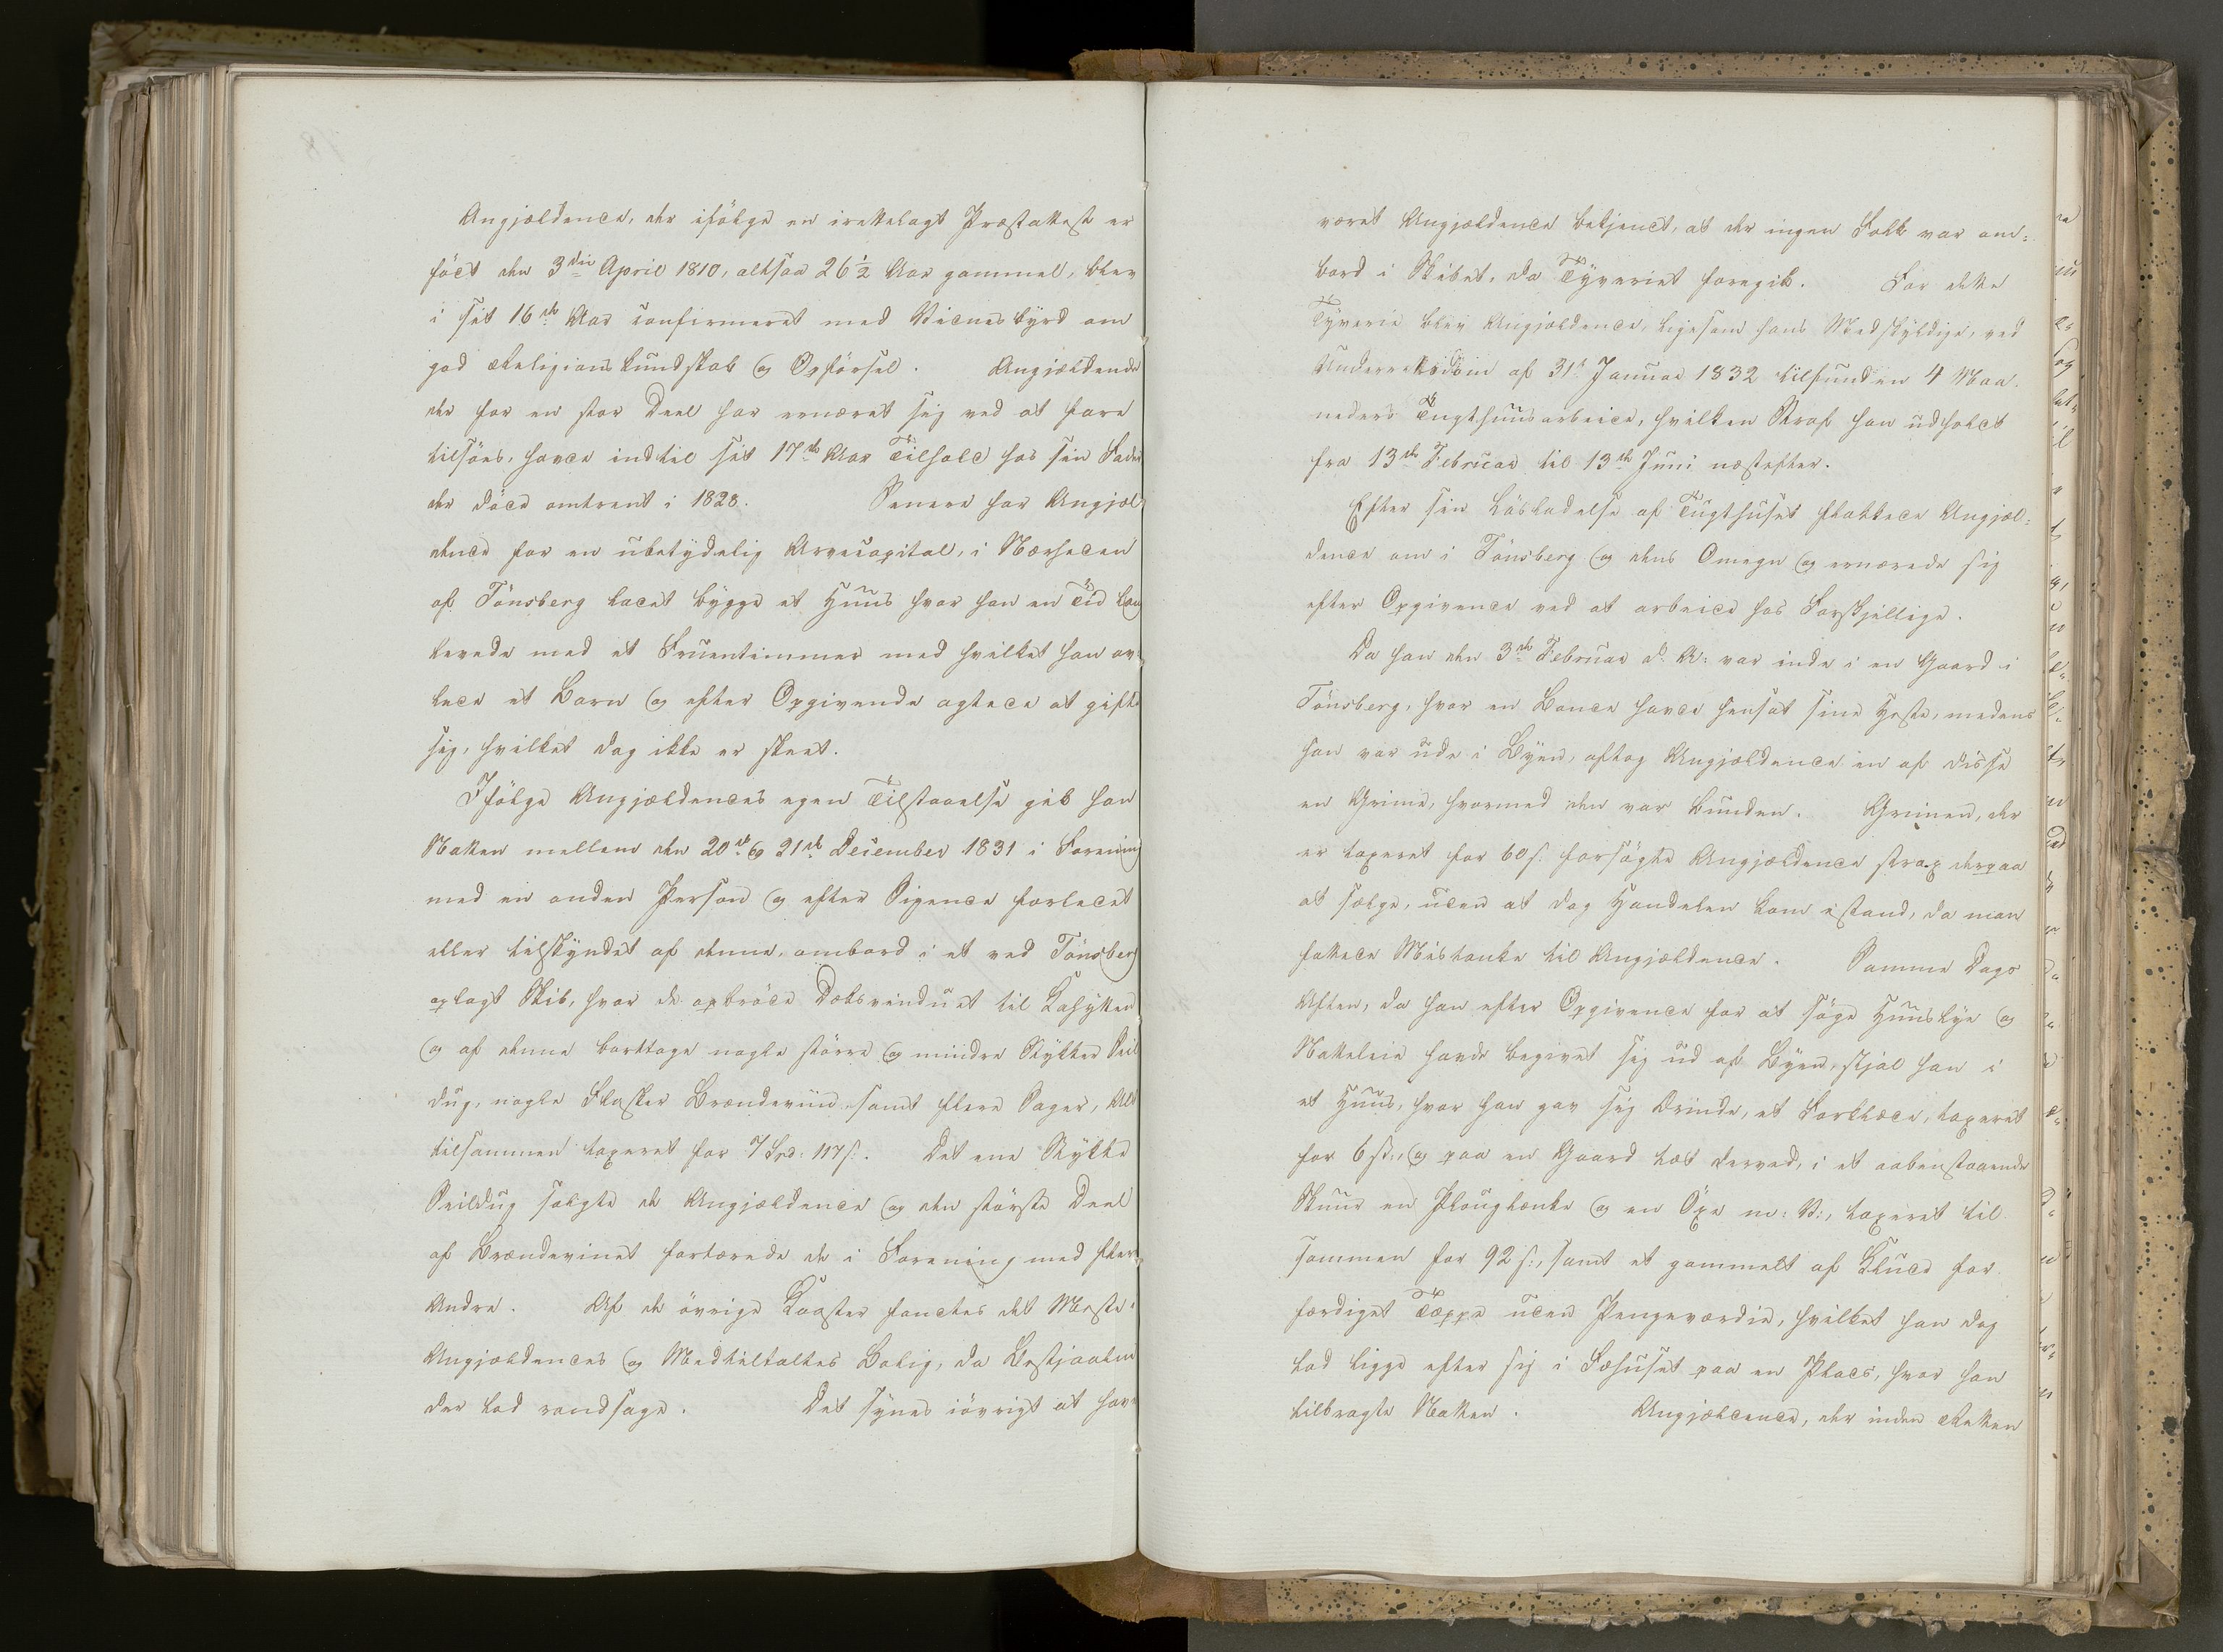 Angjældende, der ifölge en irettelagt Præstattest er
föd den 3die April 1810, altsaa 26 1/2 Aar gammel, blev
i sit 16de Aar confirmeret med Vidnesbyrd om
god Religionskundskab og Opförsel. Angjældende
der for en stor Deel har ernæret sig ved at fare
tilsöes, havde indtil sit 17de Aar Tilhold hos sin Fader
der döde omtrent i 1828. Senere har Angjæl
dende for en ubetydelig Arvecapital, i Nærheden
af Tönsberg ladet bygge et Huus hvor han en Tid
levede med et Fruentimmer med hvilket han av:
lede et Barn og efter Opgivende agtede at gifte
sig, hvilket dog ikke er skeet.
Ifölge Angjældendes egen Tilstaaelse gik han
Natten mellem den 20de og 21de December 1831 i Forening
med en anden Person og efter Sigende forledet
eller tilskyndet af denne, ombord i et ved Tönsberg
oplagt Skib, hvor de opbröde Dæksvinduet til Kahytten
og af denne borttoge nogle större og mindre Stykker Seil
dug, nogle Flasker Brændeviin samt flere Sager, Alt
tilsammen taxeret for 7 Spd: 117 s:. Det ene Stykke
Seildug solgte de Angjældende og den störste Deel
af Brændevinet fortærede de i Forening med flere
Andre. Af de övrige Koster fandtes det Meste i
Angjældendes og Medtiltaltes Bolig, da Bestjaalne
der lod randsage. Det synes iövrigt at have
været Angjældende bekjendt, at der ingen Folk var om:
bord i Skibet, da Tyveriet foregik. For dette
Tyverie blev Angjældende, ligesom hans Medskyldige, ved
Underretsdom af 31te Januar 1832 tilfunden 4 Maa:
neders Tugthuusarbeide, hvilken Straf han udholdt
fra 13de Februar til 13de Juni næstefter.
Efter sin Lösladelse af Tugthuset flakkede Angjæl:
dende om i Tönsberg og dens Omegn og ernærede sig
efter Opgivende ved at arbeide hos Forskjellige.
Da han den 3de Februar d: A: var inde i en Gaard i
Tönsberg, hvor en Bonde havde hensat sine Heste, medens
han var ude i Byen, aftog Angjældende en af disse
en Grime, hvormed den var bunden. Grimen, der
er taxeret for 60 s: forsögte Angjældende strax derpaa
at sælge, uden at dog Handelen kom istand, da man
fattede Mistanke til Angjældende. Samme Dags
Aften, da han efter Opgivende for at söge Huuslye og
Natteleie havde begivet sig ud af Byen, stjal han i
et Huus, hvor han gav sig Ærinde, et Forklæde, taxeret
for 6 s:, og paa en Gaard tæt derved, i et aabenstaaende
Skuur en Plouglænke og en Öxe m: V:, taxeret til
sammen for 92 s:, samt et gammelt af Klude for
færdiget Tæppe uden Pengeværdie, hvilket han dog
lod ligge efter sig i Fæhuset paa en Plads, hvor han
tilbragte Natten. Angjældende, der inden Retten